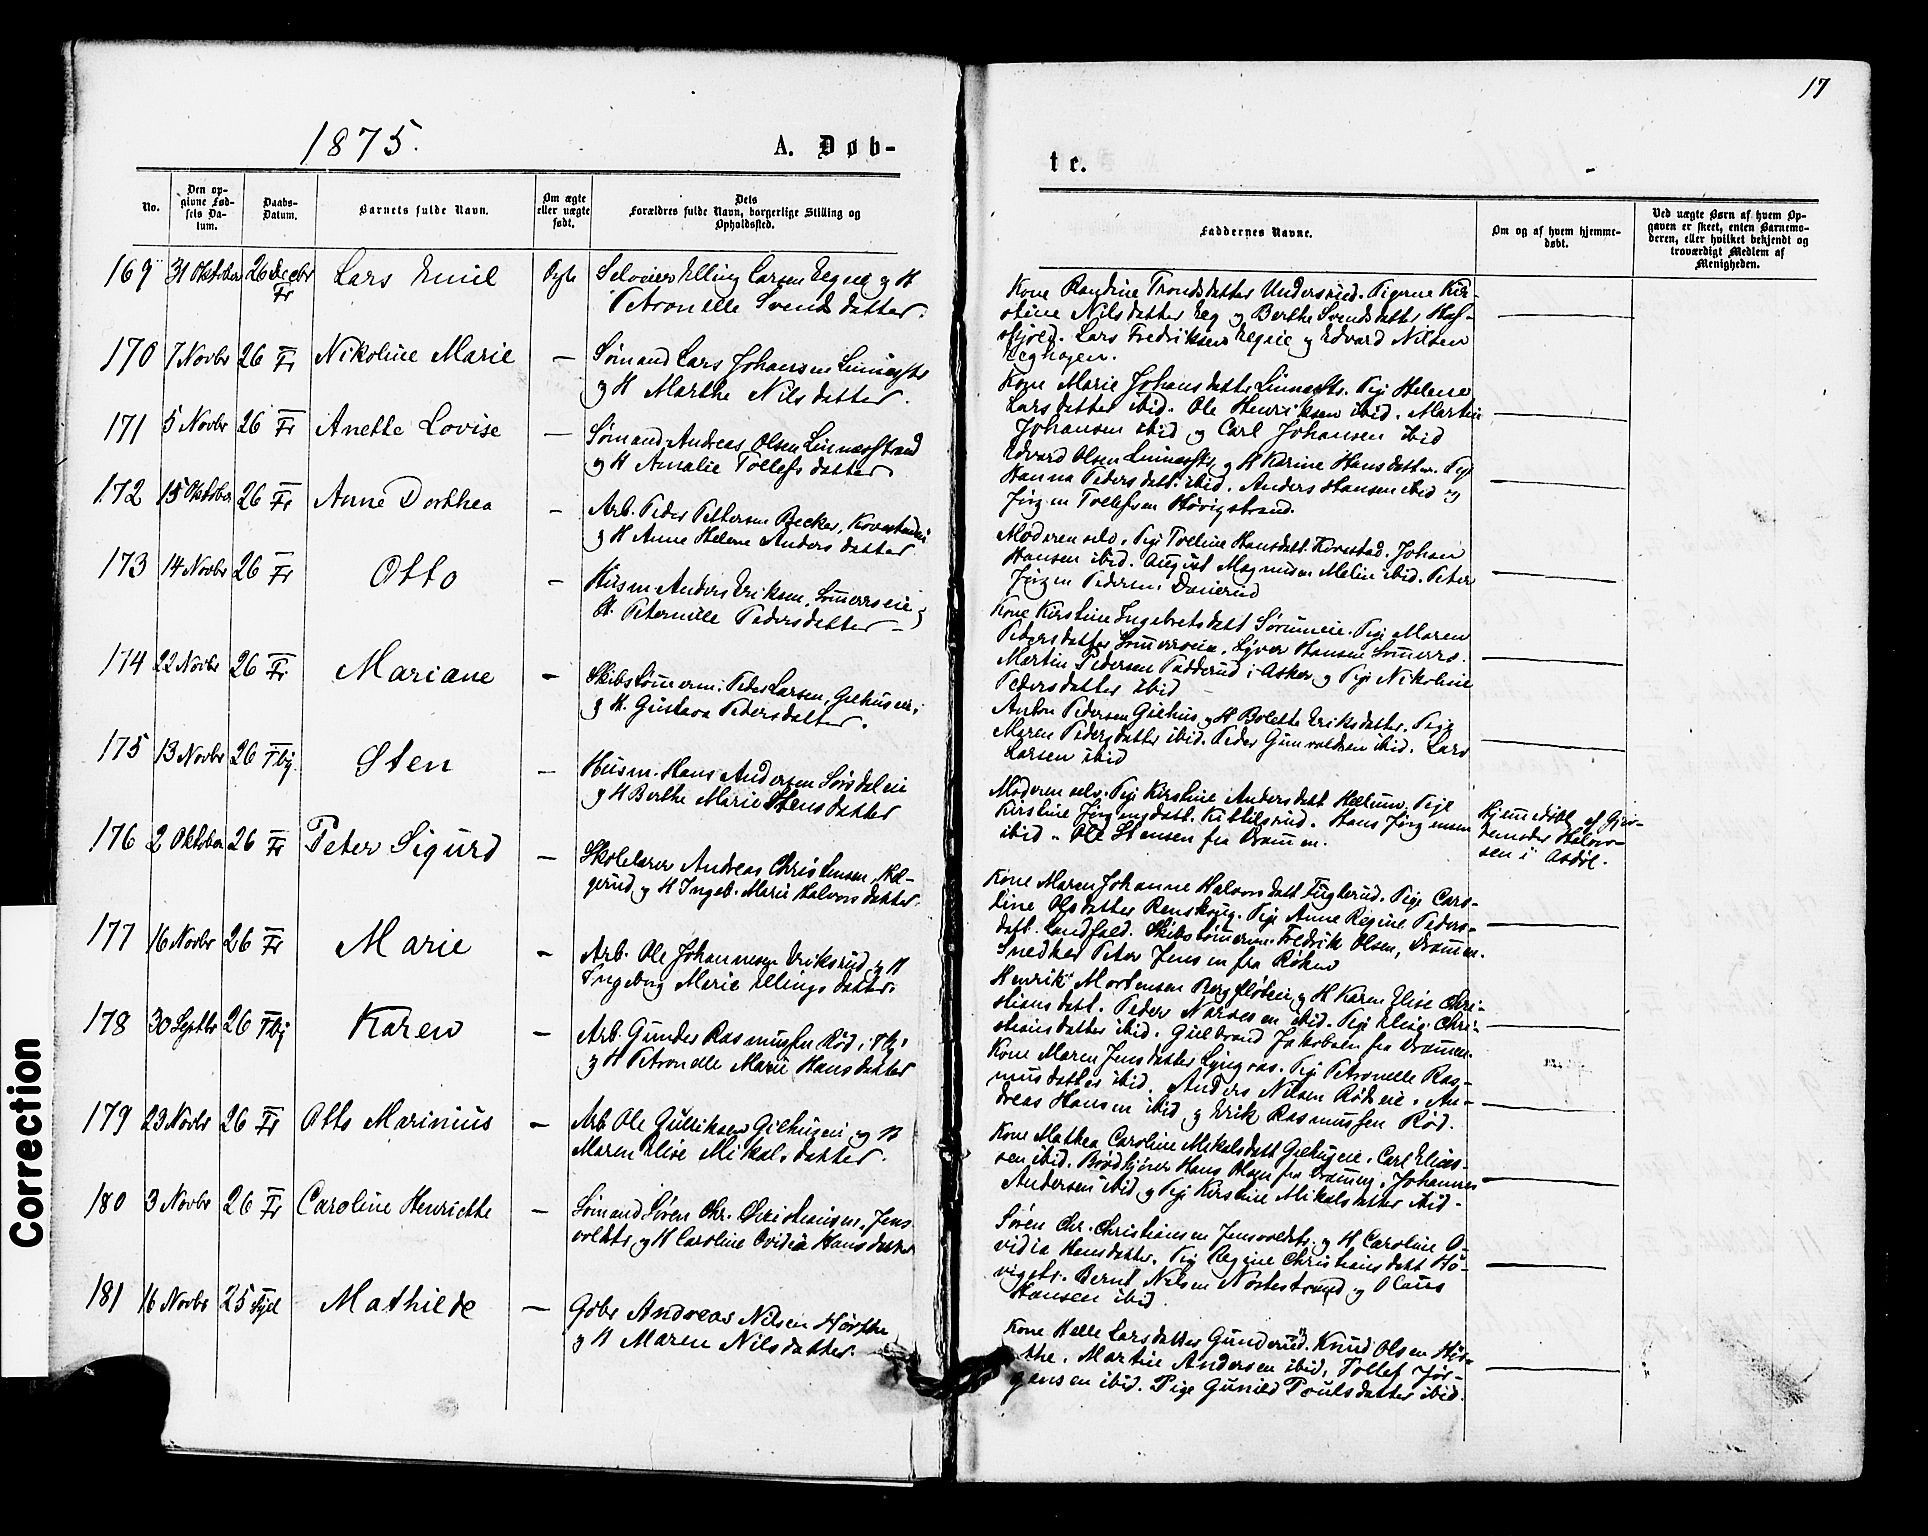 17
1875.
A. Døb-
te.
No.
Den op-
givne Fød-
sels Da-
tum.
Daabs-
Datum.
Barnets fulde Navn.
Om ægte
eller uægte
født.
Dets
Forældres fulde Navn, borgerlige Stilling og
Opholdssted.
Faddernes Navne.
Om og af hvem hjemme-
døbt.
Ved uægte Børn af hvem Op-
gaven er skeet, enten Barnemo-
deren, eller hvilket bekjendt og
troværdigt Medlem af
Menigheden.
169 31 Oktober 26 Decbr Fr Lars Emil Ægte Selveier Elling Larsen og H
Petronelle Svendsdatter.
Kone Randine Trondsdatter Undersrud. Pigerne Kir-
stine Nilsdatter Eeg og Berthe Svendsdatter
Lars Fredriksen og Edvard Nilsen
Eeghagen.
170 7 Novbr 26 Fr Nikoline Marie — Sømand Lars Johansen
og H Marthe Nilsdatter.
Kone Marie Johansdatter Pige Helene
Larsdatter ibid. Ole Henriksen ibid. Martin
Johansen ibid og Carl Johansen ibid
171 5 Novbr 26 Fr Anette Lovise — Sømand Andreas Olsen Linnesstrand
og H Amalie Tollefsdatter
Edvard Olsen og H Karine Hansdatter. Pige
Hanna Pedersdatt. ibid. Anders Hansen ibid og
Jørgen Tollefsen Høvigstrand.
172 15 Oktober 26 Fr Anne Dorthea — Arb. Peder Pettersen Becker,
og H Anne Helene Andersdatter
Moderen selv. Pige Toline Hansdatt Kovestad. Johan
Hansen ibid. August Magnusen Melin ibid. Peter
Jørgen Pedersen
173 14 Novbr 26 Fr Otto — Husm. Anders Eriksen, og
H. Peternille Pedersdatter —
Kone Kirstine Ingebretsdatt Pige Maren
Pedersdatter Syver Hansen
Martin Pedersen i Asker og Pige Nikoline
Pedersdatter ibid
174 22 Novbr 26 Fr Mariane — Skibstømmerm. Peder Larsen,
og H. Gustava Pedersdatter.
Anton Pedersen Gilhus og H Bolette Eriksdatter. Pige
Maren Pedersdatter ibid. Peder Gunvaldsen ibid. Lars
Larsen ibid
175 13 Novbr 26 Tbj. Sten — Husm. Hans Andersen Sørsdaleie
og H Berthe Marie Stensdatter
Moderen selv. Pige Kirstine Andersdatt Pige
Kirstine Jørgensdatt. Hans Jørgensen
ibid. Ole Stensen fra Drammen.
176 2 Oktober 26 Fr Peter Sigurd — Skolelærer Andreas Christensen,
og H Ingeb. Marie Halvorsdatter.
Kone Maren Johanne Halvorsdatt Fuglerud. Pige Caro-
line Olsdatter Renskoug. Pige Anne Regine Peders-
datt. Landfald. Skibstømmerm. Fredrik Olsen, Drammen.
Snedker Peter Jensen fra Røken
Hjemmedøbt af Gjor-
demoder Halvor-
sen i Asdøl.
177 16 Novbr 26 Fr Marie — Arb. Ole Johannesen Eriksrud og H
Ingeborg Marie Ellingsdatter.
Henrik Mortensen og H Karen Elise Chri-
stiansdatt. Peder ibid. Pige Elise Chri-
stiansdatter ibid. Gulbrand Jakobsen fra Drammen.
178 30 Septbr 26 Tbj Karen — Arb. Gunder Rasmussen Rød i Tbj.
og H Petronelle Marie Hansdatter
Kone Maren Jensdatter Lyngaas. Pige Petronelle Ras-
musdatter ibid. Anders Nilsen Rødseie. An-
dreas Hansen ibid og Erik Rasmussen Rød.
179 23 Novbr 26 Fr Otto Marinius — Arb Ole Gulriksen Gilhuseie og H
Maren Elise Mikalsdatter.
Kone Mathea Caroline Mikalsdatt Gilhuseie. Carl Elias-
sen ibid. Hans Olsen fra Drammen. Johannes
Andersen ibid og Pige Kirstine Mikalsdatter ibid.
180 3 Novbr 26 Fr Caroline Henriette — Sømand Søren Chr. Christiansen, Jens
voldstr. og H Caroline Ovidia Hansdatter
Søren Chr. Christiansen Jensvoldstr. og H Caroline O-
vidia Hansdatter. Pige Regine Christiansdatt Hø-
vigstr. Bernt Nilsen og Olaus
Hansen ibid.
181 16 Novbr 25 Syl Mathilde — Gbr. Andreas Nilsen Hørthe
og H Maren Nilsdatter.
Kone Helle Larsdatter Gunderud. Knud Olsen Hør-
the. Martin Andersen ibid. Tollef Jør-
gensen ibid. Pige Gunild Poulsdatter ibid.
Correction